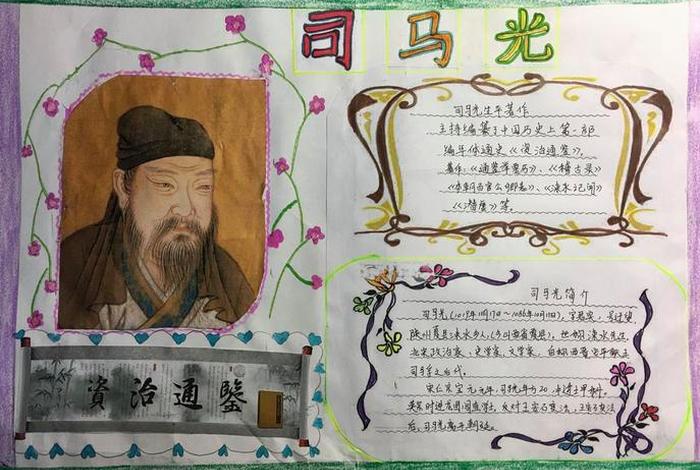 司马光
司马光生平著作
主持编纂了中国历史上第一部
编年体通史《资治通鉴》,
著作:《通鉴举要历》、《稽古录》
《本朝百官公卿表》、《涑水记闻》
《潜虚》等。
資治通鑒
司马光简介
司马光(1019年11月17日~1086年10月11日),字君实,号迂叟,
陕州夏县涑水乡人,(今山西省夏县),世称涑水先生,
北宋政治家、史学家、文学家,自称西晋安平献王
司马孚之后代。
宋仁宗宝元元年,司马光年方20,中进士甲科。
英宗时进龙图阁直学士,反对王安石变法,
后,司马光离开朝廷。